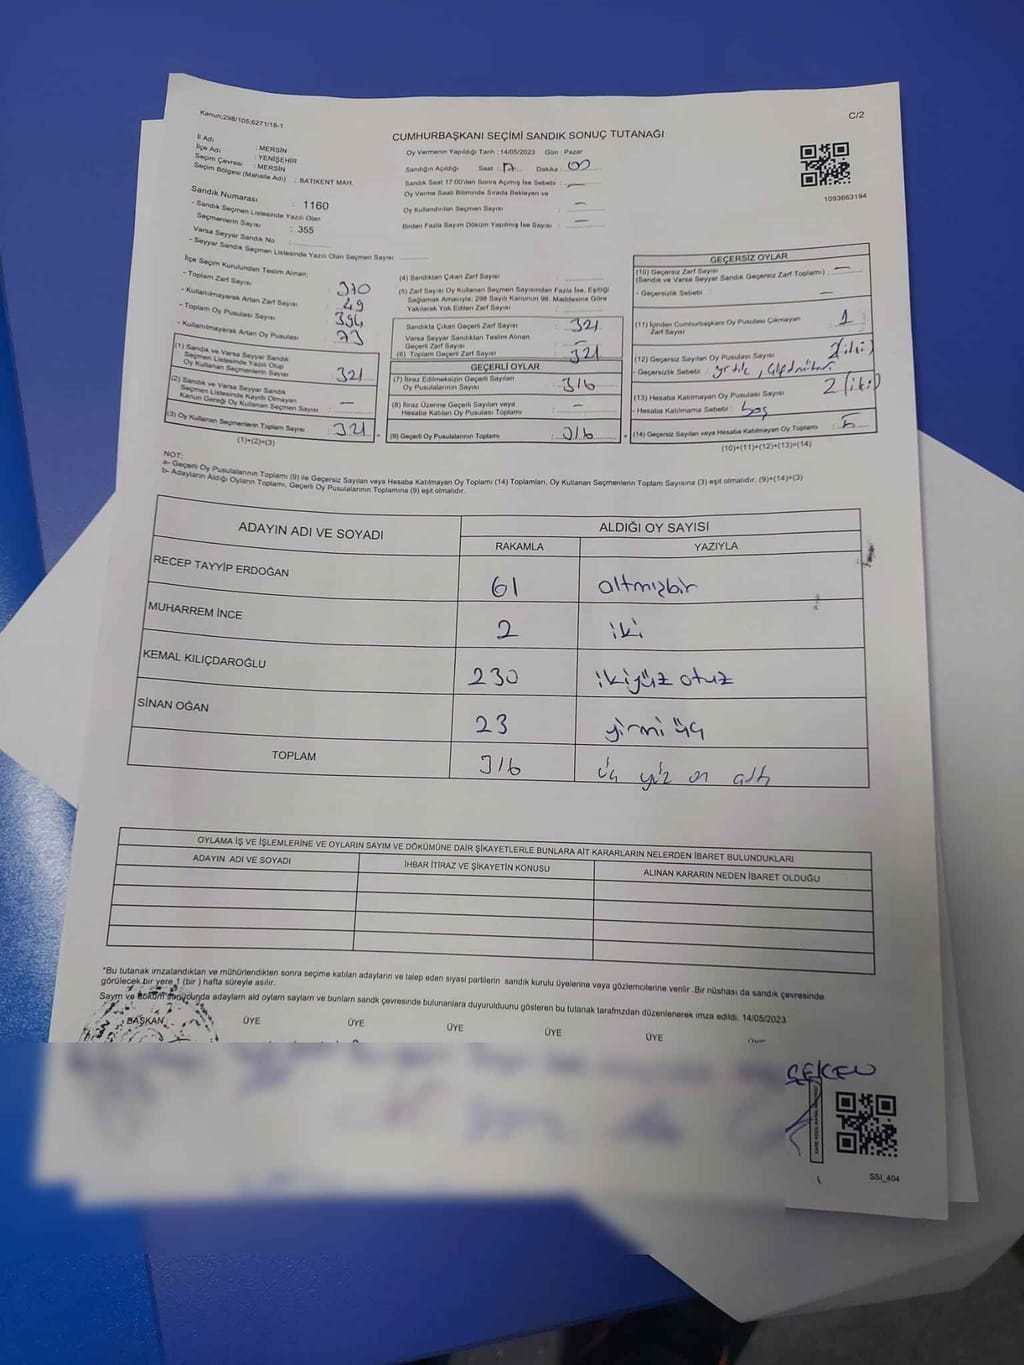 Kanun:298/105;6271/18-1
C/2
CUMHURBAŞKANI SEÇİMİ SANDIK SONUÇ TUTANAĞI
İl Adı : MERSİN
İlçe Adı : YENİŞEHİR
Seçim Çevresi : MERSİN
Seçim Bölgesi (Mahalle Adı) : BATIKENT MAH.
Sandık Numarası : 1160
- Sandık Seçmen Listesinde Yazılı Olan
Seçmenlerin Sayısı : 355
Varsa Seyyar Sandık No :
- Seyyar Sandık Seçmen Listesinde Yazılı Olan Seçmen Sayısı:
Oy Vermenin Yapıldığı Tarih : 14/05/2023 Gün : Pazar
Sandığın Açıldığı Saat : 17 Dakika : 00
Sandık Saat 17:00'den Sonra Açılmış İse Sebebi : —
Oy Verme Saati Bitiminde Sırada Bekleyen ve
Oy Kullandırılan Seçmen Sayısı : —
Birden Fazla Sayım Döküm Yapılmış İse Sayısı : —
1093663194
İlçe Seçim Kurulundan Teslim Alınan;
- Toplam Zarf Sayısı : 370
- Kullanılmayarak Artan Zarf Sayısı : 49
- Toplam Oy Pusulası Sayısı : 394
- Kullanılmayarak Artan Oy Pusulası : 73
(1) Sandık ve Varsa Seyyar Sandık
Seçmen Listesinde Yazılı Olup
Oy Kullanan Seçmenlerin Sayısı : 321
(2) Sandık ve Varsa Seyyar Sandık
Seçmen Listesinde Kayıtlı Olmayan
Kanun Gereği Oy Kullanan Seçmen Sayısı : —
(3) Oy Kullanan Seçmenlerin Toplam Sayısı : 321
(1)+(2)=(3)
(4) Sandıktan Çıkan Zarf Sayısı :
(5) Zarf Sayısı Oy Kullanan Seçmen Sayısından Fazla İse, Eşitliği
Sağlamak Amacıyla; 298 Sayılı Kanunun 98. Maddesine Göre
Yakılarak Yok Edilen Zarf Sayısı :
Sandıkta Çıkan Geçerli Zarf Sayısı : 321
Varsa Seyyar Sandıktan Teslim Alınan
Geçerli Zarf Sayısı : —
(6) Toplam Geçerli Zarf Sayısı : 321
GEÇERLİ OYLAR
(7) İtiraz Edilmeksizin Geçerli Sayılan
Oy Pusulalarının Sayısı : 316
(8) İtiraz Üzerine Geçerli Sayılan veya
Hesaba Katılan Oy Pusulası Toplamı : —
(9) Geçerli Oy Pusulalarının Toplamı : 316
GEÇERSİZ OYLAR
(10) Geçersiz Zarf Sayısı
(Sandık ve Varsa Seyyar Sandık Geçersiz Zarf Toplamı) : —
- Geçersizlik Sebebi : —
(11) İçinden Cumhurbaşkanı Oy Pusulası Çıkmayan
Zarf Sayısı : 1
(12) Geçersiz Sayılan Oy Pusulası Sayısı : 2 (iki)
- Geçersizlik Sebebi :
(13) Hesaba Katılmayan Oy Pusulası Sayısı : 2 (iki)
- Hesaba Katılmama Sebebi : boş
(14) Geçersiz Sayılan veya Hesaba Katılmayan Oy Toplamı : 5
(10)+(11)+(12)+(13)=(14)
NOT:
a- Geçerli Oy Pusulalarının Toplamı (9) ile Geçersiz Sayılan veya Hesaba Katılmayan Oy Toplamı (14) Toplamları, Oy Kullanan Seçmenlerin Toplam Sayısına (3) eşit olmalıdır. (9)+(14)=(3)
b- Adayların Aldığı Oyların Toplamı, Geçerli Oy Pusulalarının Toplamına (9) eşit olmalıdır.
ADAYIN ADI VE SOYADI ALDIĞI OY SAYISI
RAKAMLA YAZIYLA
RECEP TAYYİP ERDOĞAN 61 altmışbir
MUHARREM İNCE 2 iki
KEMAL KILIÇDAROĞLU 230 ikiyüz otuz
SİNAN OĞAN 23 yirmi üç
TOPLAM 316 üç yüz on altı
OYLAMA İŞ VE İŞLEMLERİNE VE OYLARIN SAYIM VE DÖKÜMÜNE DAİR ŞİKAYETLERLE BUNLARA AİT KARARLARIN NELERDEN İBARET BULUNDUKLARI
ADAYIN ADI VE SOYADI İHBAR İTİRAZ VE ŞİKAYETİN KONUSU ALINAN KARARIN NEDEN İBARET OLDUĞU
*Bu tutanak imzalandıktan ve mühürlendikten sonra seçime katılan adayların ve talep eden siyasi partilerin sandık kurulu üyelerine veya gözlemcilerine verilir .Bir nüshası da sandık çevresinde
görülecek bir yere 1 (bir ) hafta süreyle asılır.
Saym ve döküm sonucunda adaylarn ald oylarn saylarn ve bunlarn sandk çevresinde bulunanlara duyurulduunu gösteren bu tutanak tarafmzdan düzenlenerek imza edildi. 14/05/2023
BAŞKAN ÜYE ÜYE ÜYE ÜYE ÜYE
SSI_404